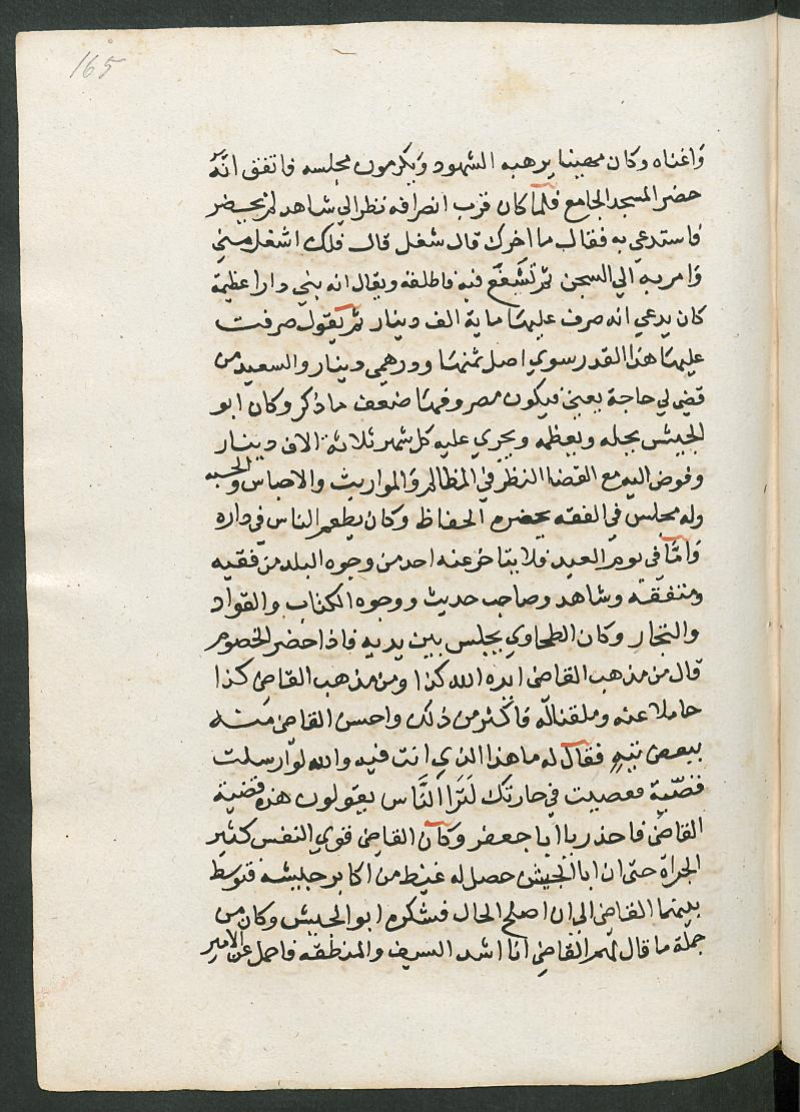 165
وَاغناه وكان مهيبا يرهبه الشهود وَيكرمون مجلسه فاتفق انَّهُ
حضر المسجد الجامع فلما كان قرب انصرافه نظر الي شاهد لم يحضر
فاستدعي به فقال ما اخرك قال شغل قال فلك اشغل مني
وَامر به الي السجن ثم تشفع فيه فاطلقه ويقال انه بني دارا عظيمة
كان يدعي انه صرف عليها ماية الف دينار ثم يقول صرفت
عليها هذا القدر سوي اصل ثمنها ودرهمي دينار والسعيد من
قضي لي حاجة يعني فيكون مصروفها ضعف ما ذكر وكان ابو
الجيش يجله ويعظمه ويجري عليه كل شهر ثلاثة الاف دينار
وفوض اليه مع القضا النظر في المظالم وَالمواريث والاحباس والحسبه
وله مجلس في الفقه يحضره الحفاظ وكان يطعم الناس في داره
وَامَّا في يوم العيد فلا يتاخر عنه احد من وجوه البلد من فقيه
ومتفقه وشاهد وصاحب حديث ووجوه الكتاب والقواد
والتجار وكان الطحاوي يجلس بين يديه فاذا حضر الخصوم
قال من مذهب القاضي ايده الله كذا ومن مذهب القاضي كذا
حاملا عنه وملقنا له فاكثر من ذلك واحس القاضي منه
ببعض تيهٍ فقال له ما هذا الذي انت فيه والله لو ارسلت
قصّبة فعصيت في حارتك لترا النَّاس يقولون هذه قضية
القاضي فاحذر يا ابا جعفر وكان القاضي قوي النفس كثير
الجراة حتى ان ابا الجيش حصل له غيظ من اكابر جيشه فتوسط
بينهما القاضي الي ان اصلح الحال فشكره ابو الجيش وكان من
جملة ما قال لهم القاضي انا اشد السيف والمنطقه فاحمل عن الامير